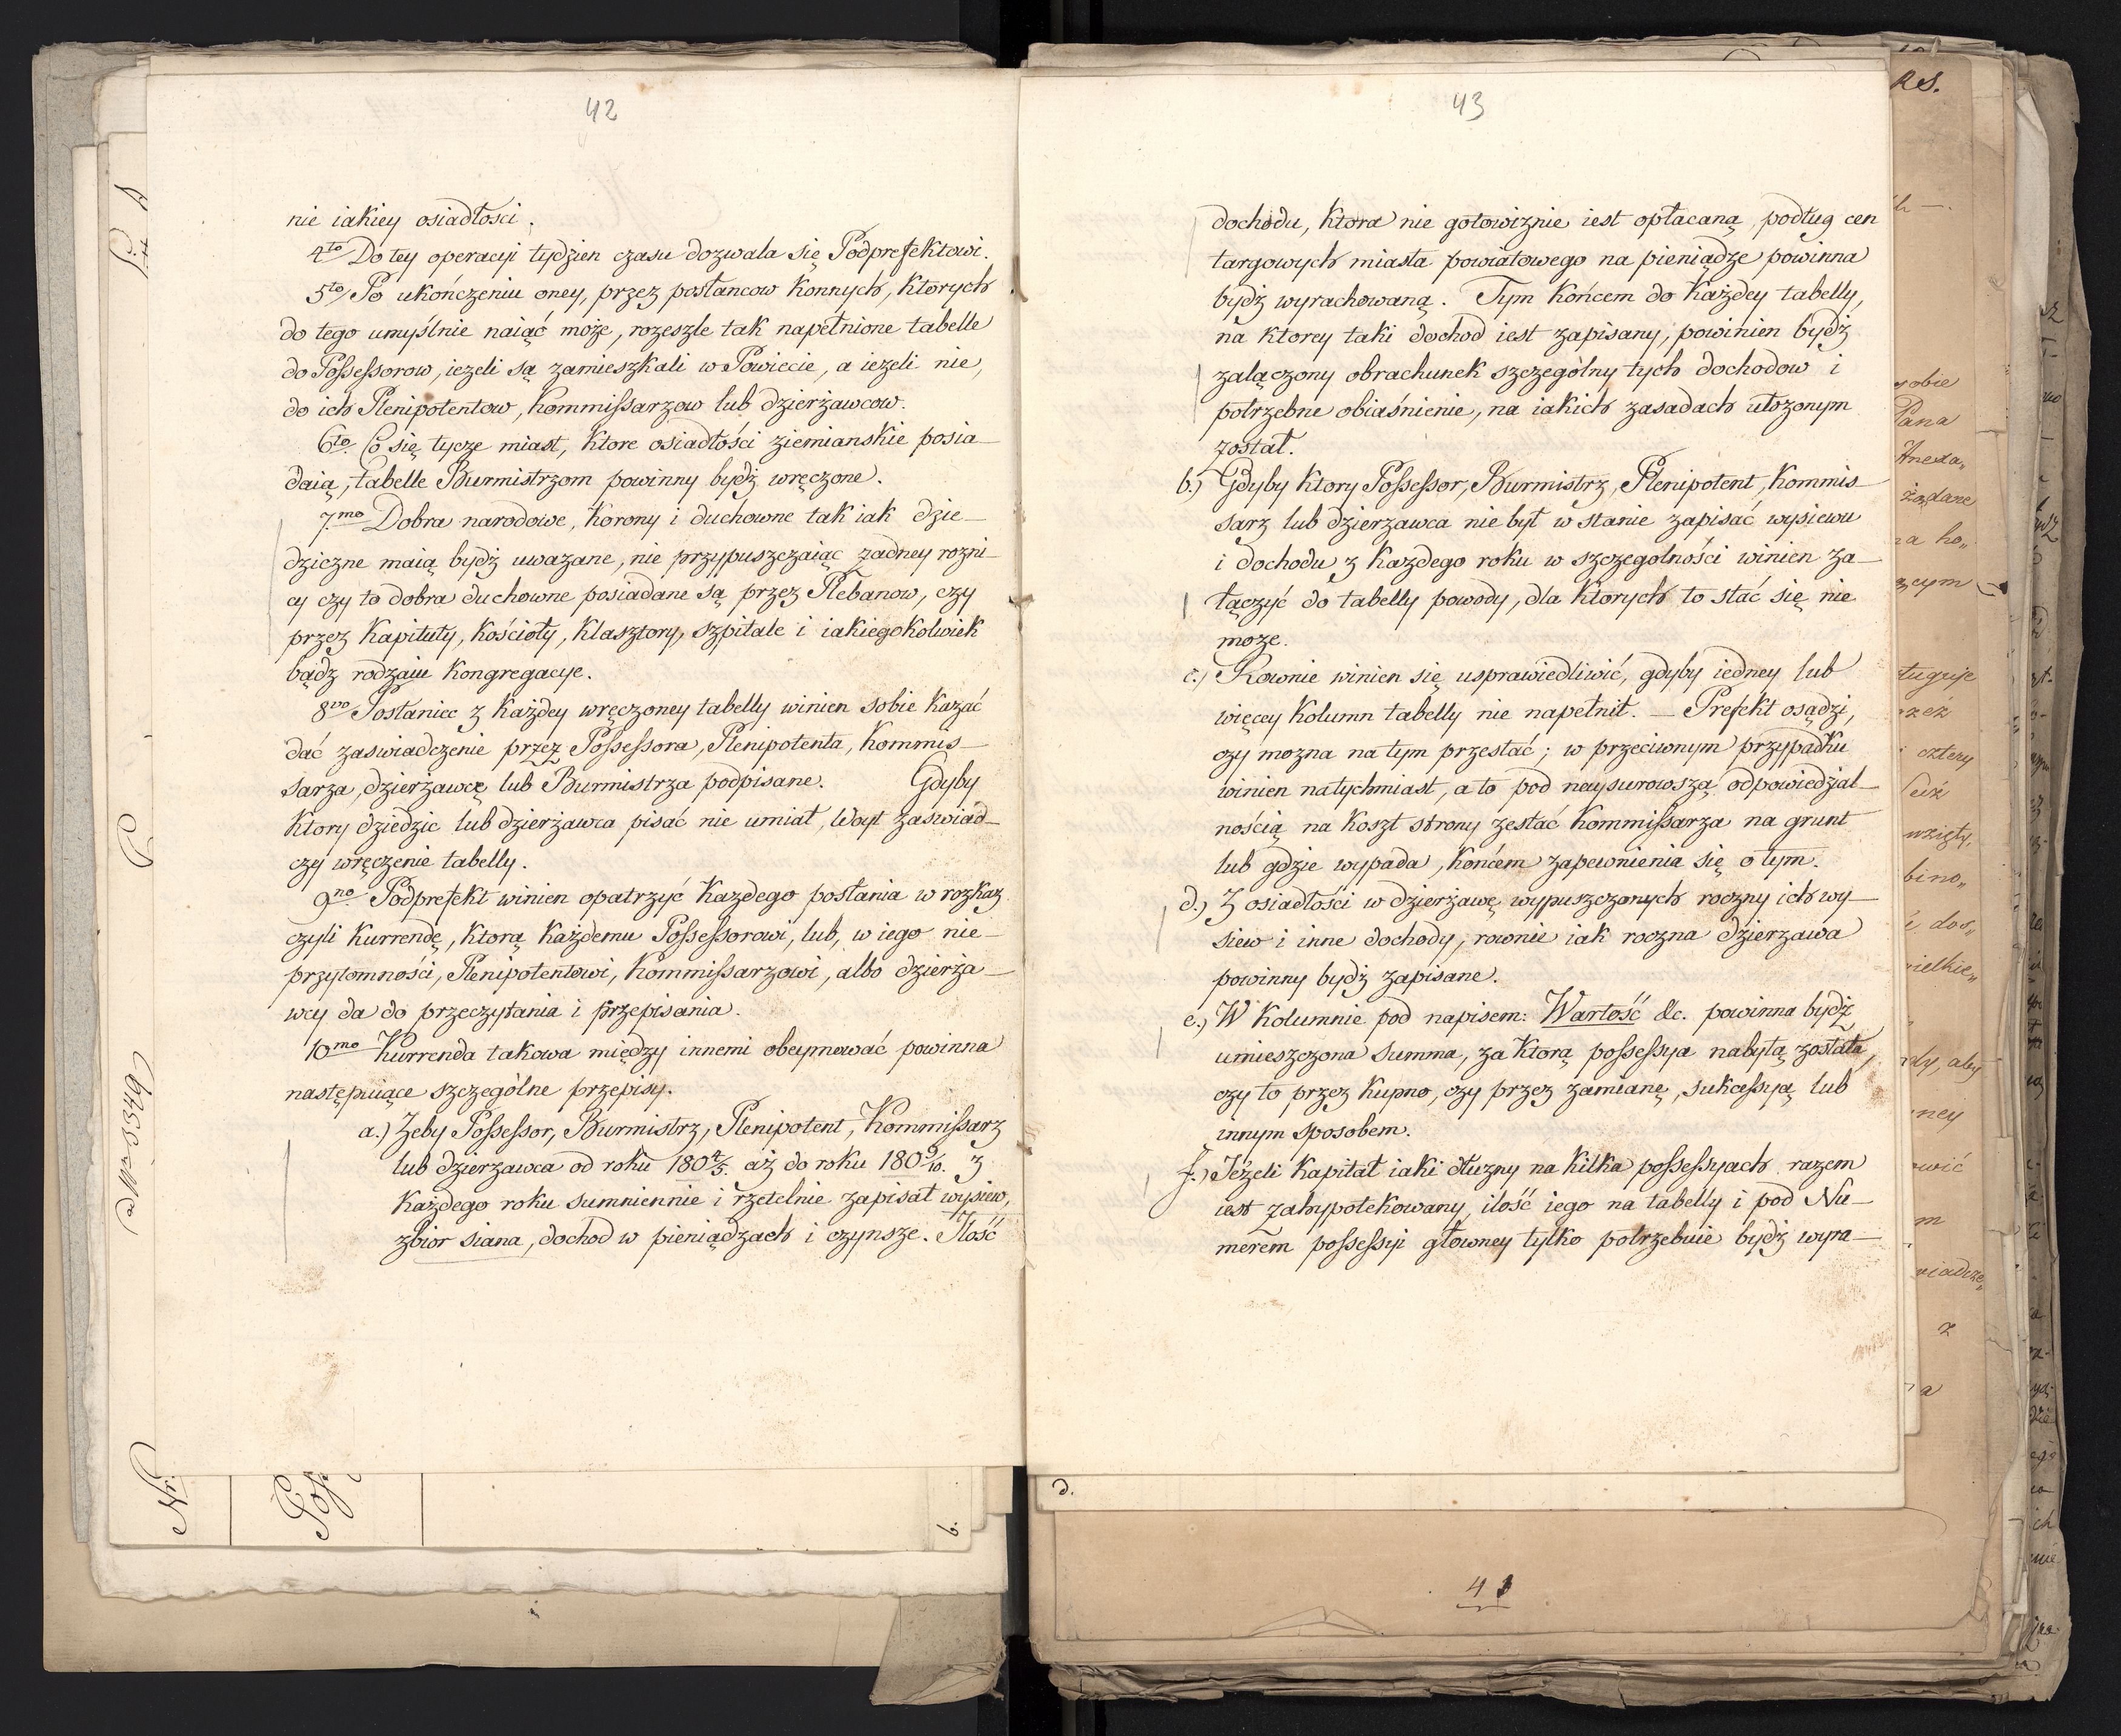 42
nie iakiey osiadłosci.
4to Do tey operacyi tydzien czasu dozwala się Podprefektowi.
5to/ Po ukończeniu oney, przez posłancow konnych, ktorych
do tego umyślnie naiąć może, rozeszle tak napełnione tabelle
do Possessorow, ieżeli są zamieszkali w Powiecie, a ieżeli nie,
do ich Plenipotentow, Kommissarzow lub dzierżawcow.
6to. Co się tycze miast, ktore osiadłości ziemianskie posia-
daią, tabelle Burmistrzom powinny bydź wręczone.
7mo Dobra narodowe, Korony i duchowne tak iak dzie-
dziczne maią bydź uwazane, nie przypuszczaiąc żadney rozni-
cy czy to dobra duchowne posiadane są przez Plebanow, czy
przez Kapituły, Kościoły, Klasztory, szpitale i iakiegokolwiek
bądz rodzaiu Kongregacye.
8vo Posłaniec z każdey wręczoney tabelly winien sobie kazać
dać zaswiadczenie przez Possessora, Plenipotenta, Kommis-
sarza, dzierżawcę lub Burmistrza podpisane. Gdyby
ktory dziedzic lub dzierżawca pisać nie umiał, Woyt zaswiad-
czy wręczenie tabelly.
9no Podprefekt winien opatrzyć każdego posłania w rozkaz
czyli Kurrendę, ktorą każdemu Possessorowi, lub, w iego nie-
przytomności, Plenipotentowi, Kommissarzowi, albo dzierża-
wcy da do przeczytania i przepisania.
10mo Kurrenda takowa między innemi obeymować powinna
następuiące szczególne przepisy.
a.) Żeby Possessor, Burmistrz, Plenipotent, Kommissarz
lub dzierzawca od roku 1804/5. aż do roku 1809/10. z
każdego roku sumniennie i rzetelnie zapisał wysiew,
zbior siana, dochod w pieniądzach i czynsze. Ilość
43
dochodu, ktora nie gotowiznie iest opłacaną, podług cen
targowych miasta powiatowego na pieniądze powinna
bydź wyrachowaną. Tym końcem do każdey tabelly,
na ktorey taki dochod iest zapisany, powinien bydź
załączony obrachunek szczególny tych dochodow i
potrzebne obiaśnienie, na iakich zasadach ułożonym
został.
b.) Gdyby ktory Possessor, Burmistrz, Plenipotent, Kommis-
sarz lub dzierzawca nie był w stanie zapisać wysiewu
i dochodu z każdego roku w szczegolności winien za-
łączyć do tabelly powody, dla ktorych to stać się nie
moze.
c.) Rownie winien się usprawiedliwić, gdyby iedney lub
więcey kolumn tabelly nie napełnił. — Prefekt osądzi,
czy mozna na tym przestać; w przeciwnym przypadku
winien natychmiast, a to pod naysurowszą odpowiedzial-
nością na koszt strony zesłać Kommissarza na grunt
lub gdzie wypada, końcem zapewnienia się o tym.
d.) Z osiadłości w dzierżawę wypuszczonych roczny ich wy-
siew i inne dochody, rownie iak roczna dzierzawa
powinny bydź zapisane.
e.) W kolumnie pod napisem: Wartość &c. powinna bydź
umieszczona summa, za ktorą possessya nabytą została,
czy to przez kupno, czy przez zamianę, sukcessyą lub
innym sposobem.
f.) Jeżeli Kapitał iaki dłuzny na kilka possessyach razem
iest zahypotekowany, ilość iego na tabelly i pod Nu-
merem possessyi głowney tylko potrzebuie bydź wyra-
d.
b.
Nr.
41